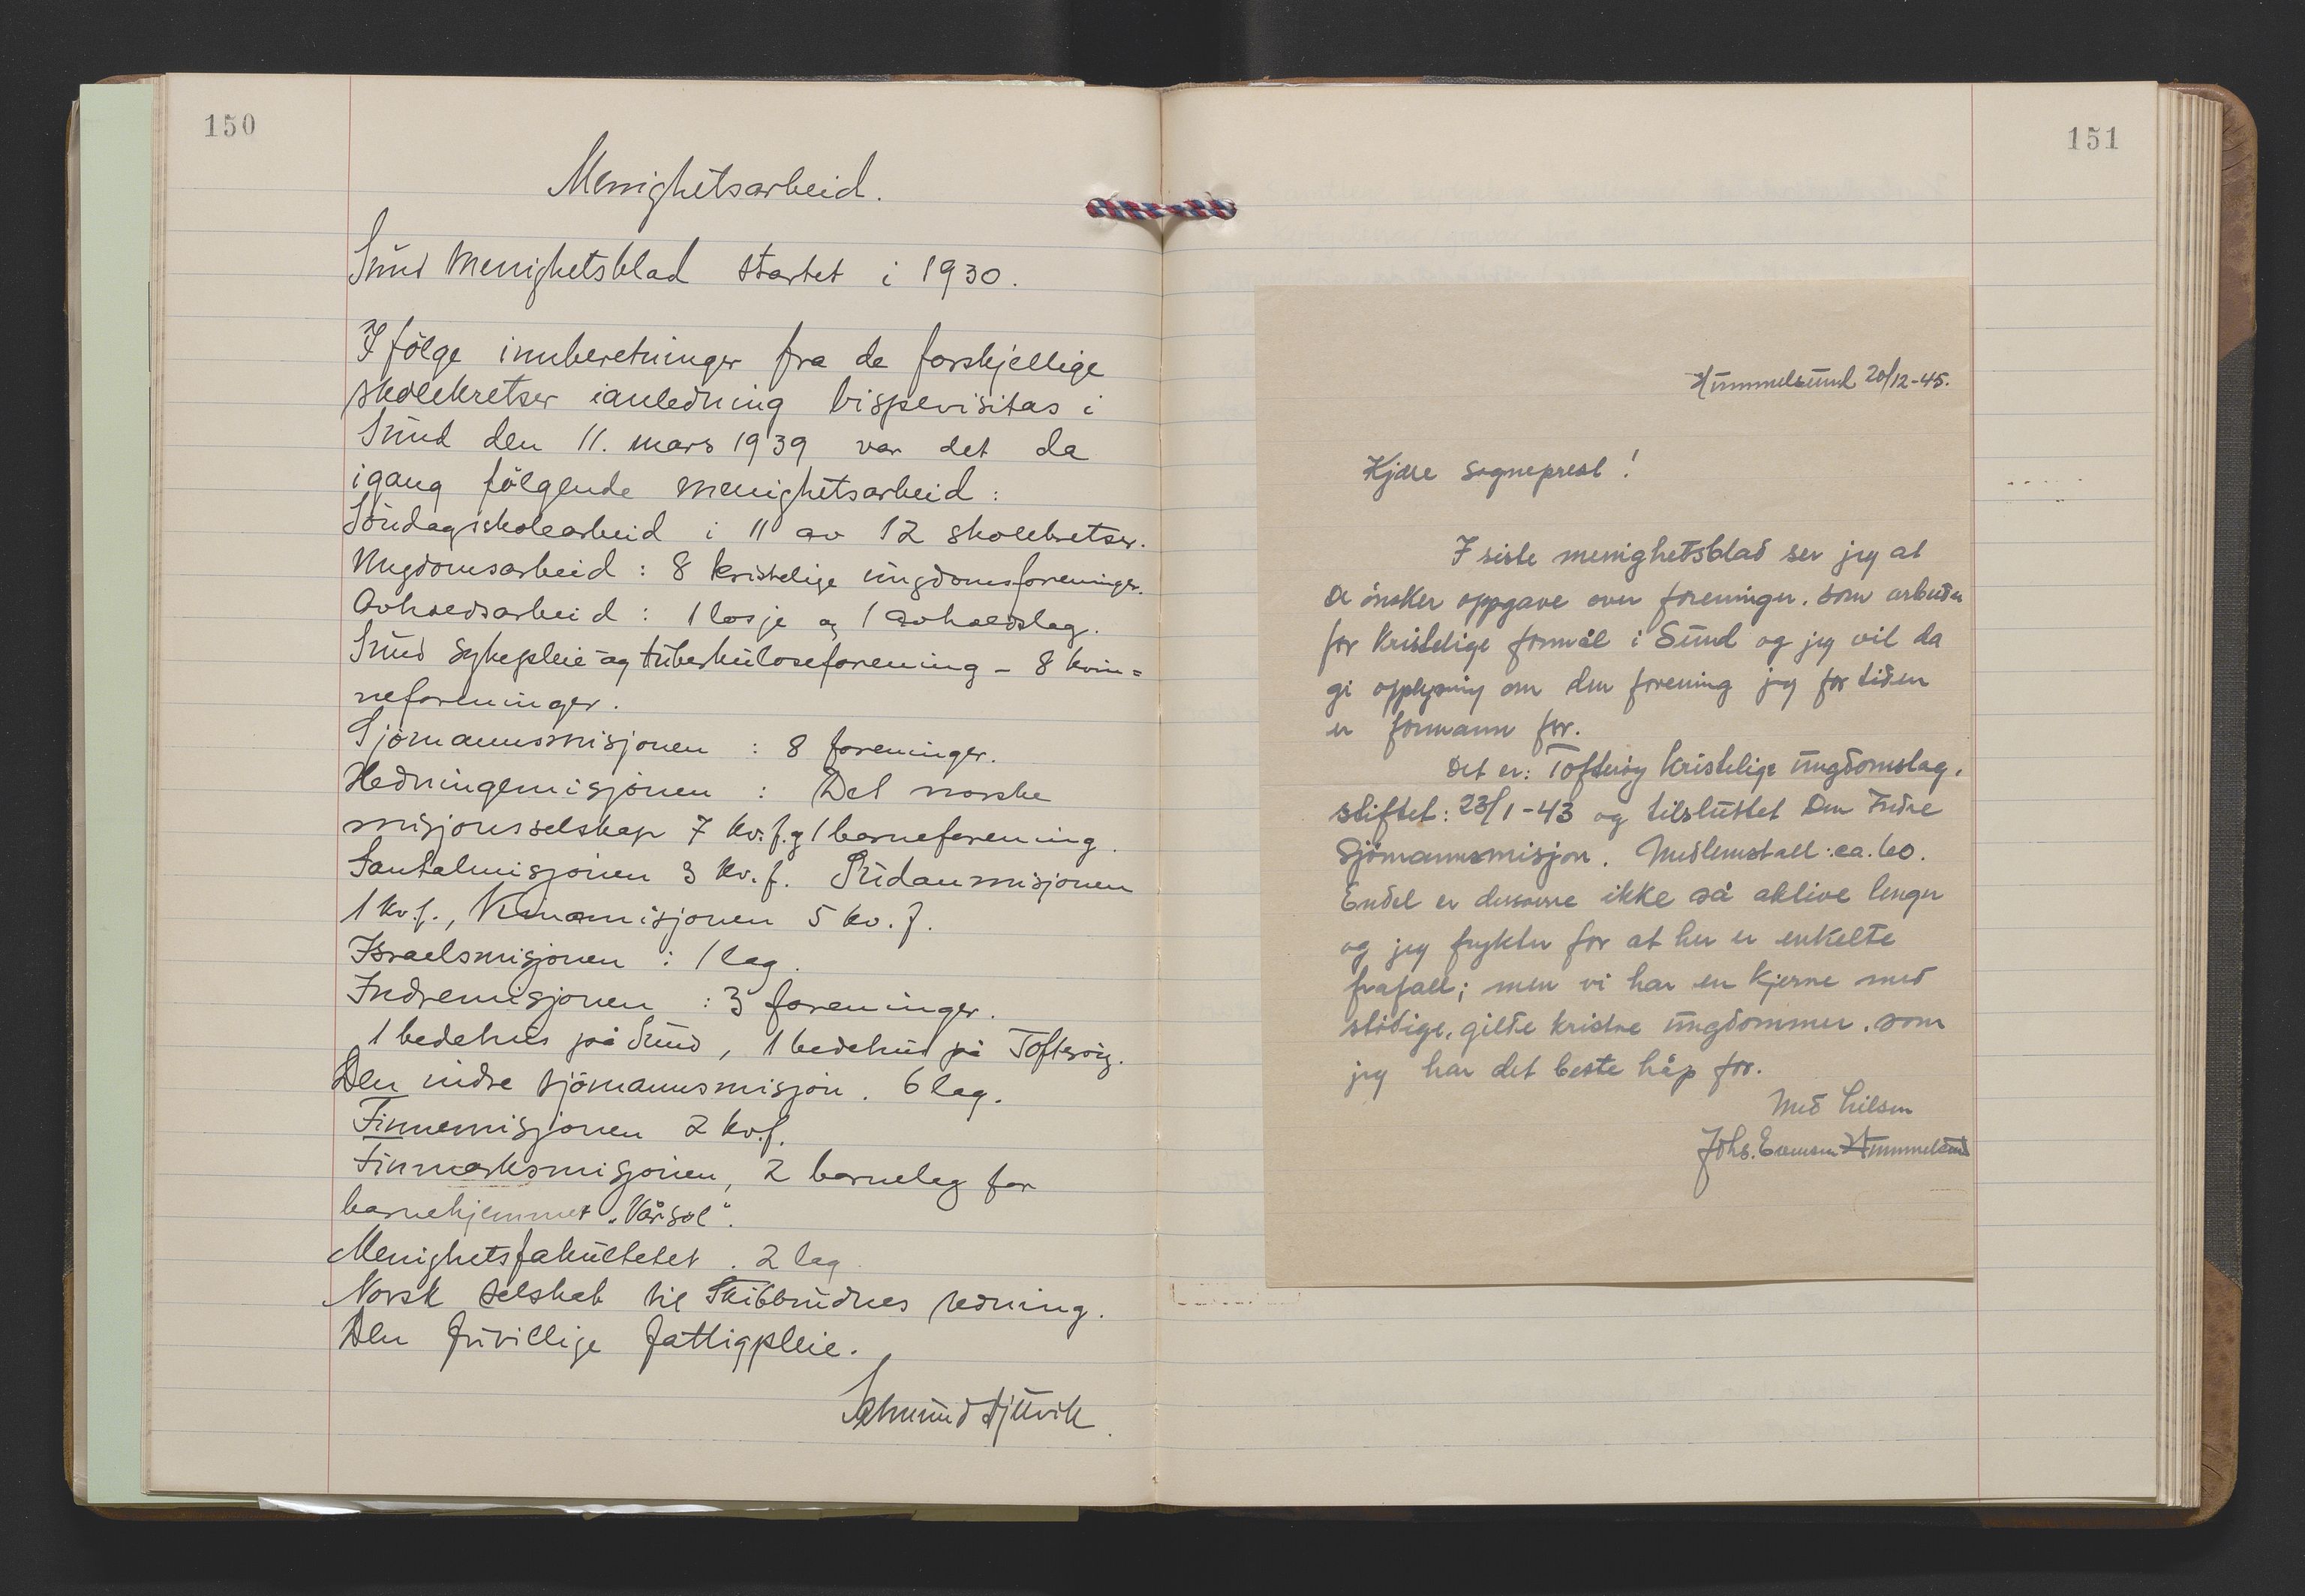 150
Menighetsarbeid.
Sund Menighetsblad startet i 1930.
Ifölge innberetninger fra de forskjellige
skolekretser ianledning bispevisitas i
Sund den 11. mars 1939 var det da
igang fölgende menighetsarbeid:
Söndagsskolearbeid i 11 av 12 skolekretser.
Ungdomsarbeid: 8 kristelige ungdomsforeninger.
Avholdsarbeid: 1 losje og 1 avholdslag.
Sund Sykepleie- og tuberkuloseforening - 8 kvin=
neforeninger.
Sjömannsmisjonen: 8 foreninger.
Hedningemisjonen: Det norske
misjonsselskap 7 kv.f. og 1 barneforening.
Santalmisjonen 3 kv.f. Sudanmisjonen
1 kv.f., Kinamisjonen 5 kv.f.
Israelsmisjonen: 1 lag.
Indremisjonen: 3 foreninger.
1 bedehus på Sund, 1 bedehus på Tofteröy.
Den indre sjömannsmisjon. 6 lag.
Finnemisjonen 2 kv.f.
Finmarksmisjonen, 2 barnelag for
barnehjemmet „Vårsol“.
Menighetsfakultetet. 2 lag
Norsk Selskab til Skibbrudnes redning.
Den frivillige fattigpleie.
151
Hummelsund 20/12-45.
Kjære sogneprest!
I siste menighetsblad ser jeg at
De önsker oppgave over foreninger, som arbeider
for kristelige formål i Sund og jeg vil da
gi opplysning om den forening jeg for tiden
er formann for.
Det er: Tofteröy Kristelige ungdomslag,
stiftet: 23/1-43 og tilsluttet Den Indre
Sjömannsmisjon. Medlemstall: ca. 60.
Endel er dessverre ikke så aktive lenger
og jeg frykter for at her er enkelte
frafall; men vi har en kjerne med
stödige, gilde kristne ungdommer, som
jeg har det beste håp for.
Med hilsen
Johs. Evensen Hummelsund